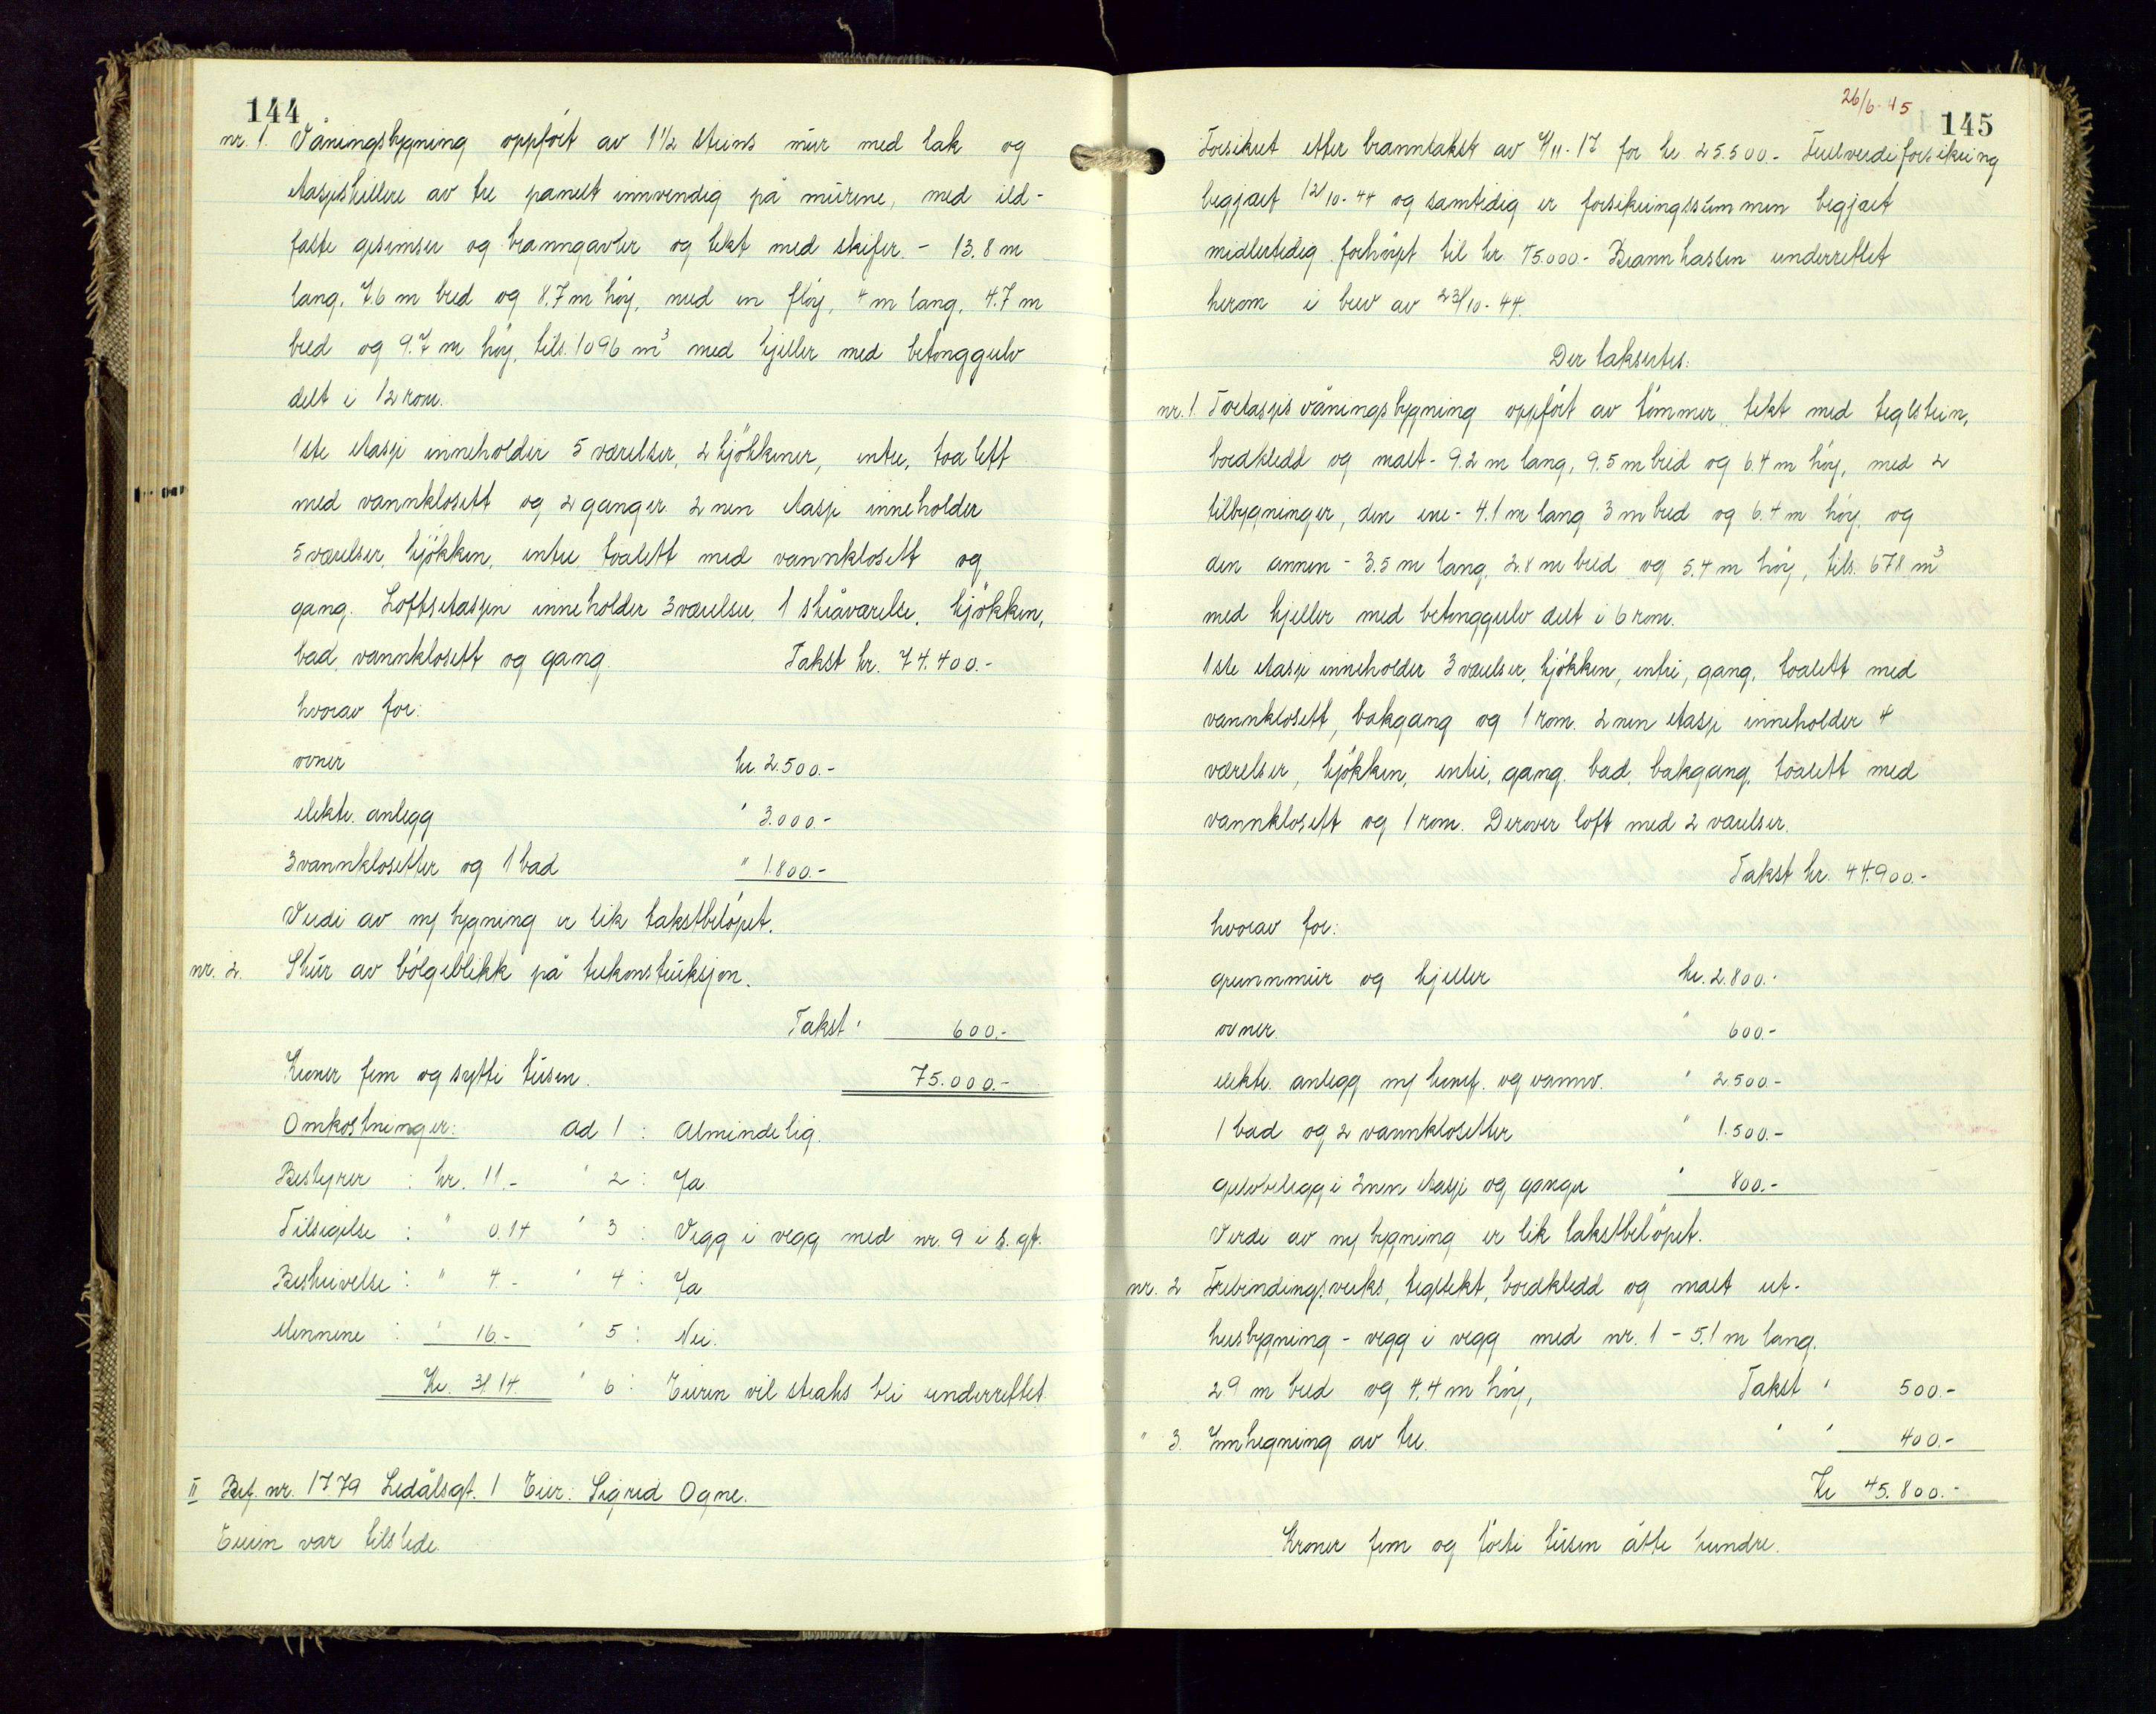 144
nr. 1. Våningsbygning oppført av 1½ steins mur med tak og
etasjeskillere av tre panelt innvendig på murene, med ild-
faste gesimser og branngavler og tekt med skifer. - 13.8 m
lang, 7.6 m bred og 8.7 m høy, med en fløy, 4 m lang, 4.7 m
bred og 9.7 m høy, tils. 1096 m³ med kjeller med betonggulv
delt i 12 rom.
1ste etasje inneholder 5 værelser, 2 kjøkkener, entre, toalett
med vannklosett og 2 ganger. 2nen etasje inneholder
5 værelser, kjøkken, entre, toalett med vannklosett og
gang. Loftsetasjen inneholder 3 værelser, 1 skråværelse, kjøkken,
bad, vannklosett og gang. Takst kr. 74.400.-
hvorav for:
ovner kr. 2.500.-
elektr. anlegg " 3.000.-
3 vannklosetter og 1 bad " 1.800.-
Verdi av ny bygning er lik takstbeløpet.
nr. 2. Skur av bølgeblikk på trekonstruksjon.
Takst " 600.-
Kroner fem og sytti tusen. 75.000.-
Omkostninger: ad 1 : Almindelig.
Bestyrer : kr. 11.- " 2 : Ja.
Tilsigelse : " 0.14 " 3 : Vegg i vegg med nr. 9 i s. gt.
Beskrivelse : " 4.- " 4 : Ja
Mennene : " 16.- " 5 : Nei.
Kr. 31.14 " 6 : Eieren vil straks bli underrettet.
II Bef. nr. 1779 Ledålsgt. 1 Eier: Sigrid Ogne.
Eieren var tilstede.
26/6-45
145
Forsikret etter branntakst av 4/11-17 for kr. 25.500.- Fullverdiforsikring
begjært 12/10-44 og samtidig er forsikringssummen begjært
midlertidig forhøyet til kr. 75.000.- Brannkassen underrettet
herom i brev av 23/10-44.
Der takseres:
nr. 1. Toetasjes våningsbygning oppført av tømmer, tekt med teglstein,
bordkledd og malt - 9.2 m lang, 9.5 m bred og 6.4 m høy, med 2
tilbygninger, den ene - 4.1 m lang 3 m bred og 6.4 m høy, og
den annen - 3.5 m lang, 2.8 m bred og 5.4 m høy, tils. 678 m³
med kjeller med betonggulv delt i 6 rom.
1ste etasje inneholder 3 værelser, kjøkken, entre, gang, toalett med
vannklosett, bakgang og 1 rom. 2nen etasje inneholder 4
værelser, kjøkken, entre, gang, bad, bakgang, toalett med
vannklosett og 1 rom. Derover loft med 2 værelser.
Takst kr. 44.900.-
hvorav for:
grunnmur og kjeller kr. 2.800.-
ovner. " 600.-
elektr. anlegg m/ komf. og vannv. " 2.500.-
1 bad og 2 vannklosetter " 1.500.-
gulvbelegg i 2nen etasje og ganger " 800.-
Verdi av ny bygning er lik takstbeløpet.
nr. 2 Trebindingsverks, tegltekt, bordkledd og malt ut-
husbygning - vegg i vegg med nr. 1 - 5.1 m lang,
2.9 m bred og 4.4 m høy, Takst " 500.-
" 3. Innhegning av tre. " " 400.-
Kr 45.800.-
Kroner fem og førti tusen åtte hundre.